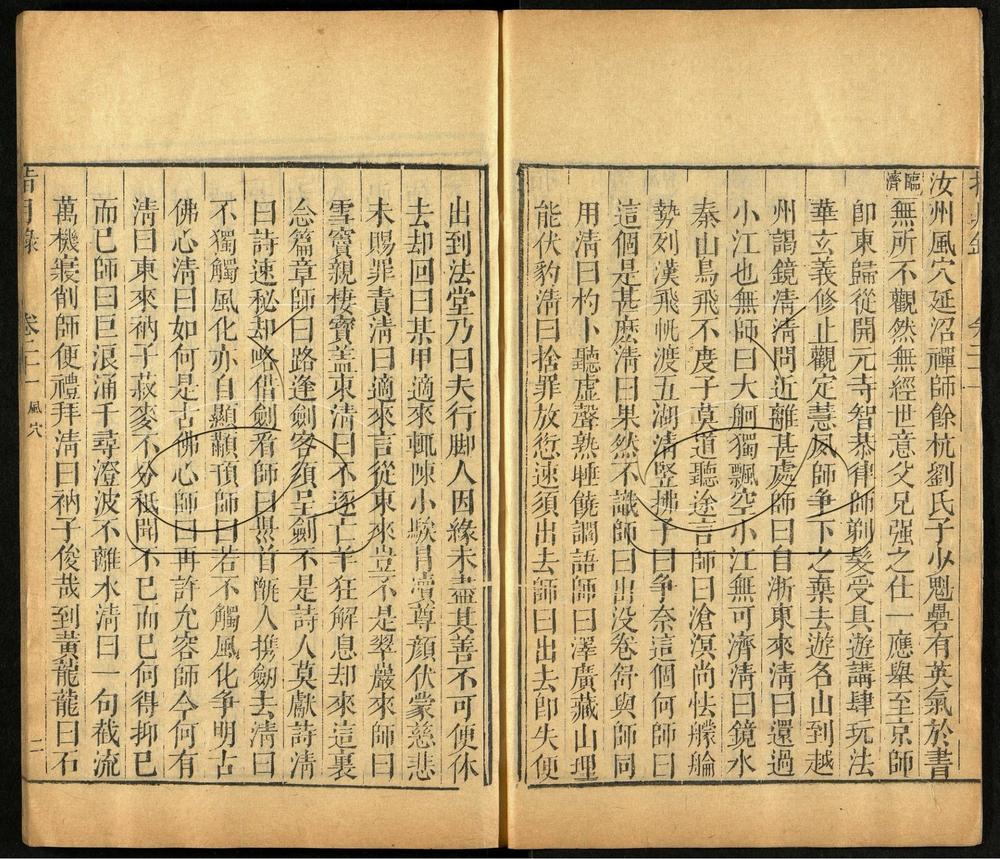 汝州風穴延沼禪師餘杭劉氏子少魁礨有英氣於書
臨濟
無所不觀然無經世意父兄强之仕一應舉至京師
即東歸從開元寺智恭律師剃髮受具遊講肆玩法
華玄義修止觀定慧夙師爭下之棄去遊名山到越
州謁鏡清清問近離甚處師曰自浙東來清曰還過
小江也無師曰大舸獨飄空小江無可濟清曰鏡水
秦山鳥飛不度子莫道聽途言師曰滄溟尚怯艨艫
勢列漢飛帆渡五湖清竪拂子曰爭奈這個何師曰
這個是甚麽清曰果然不識師曰出沒卷舒與師同
用清曰杓卜聽虛聲熟睡饒讇語師曰澤廣藏山理
能伏豹清曰捨罪放愆速須出去師曰出去即失便
出到法堂乃曰夫行脚人因緣未盡其善不可便休
去却回曰某甲適來輒陳小騃冒瀆尊顏伏蒙慈悲
未賜罪責清曰適來言從東來豈不是翠巖來師曰
雪竇親棲寶蓋東清曰不逐亡羊狂解息却來這裏
念篇章師曰路逢劍客須呈劍不是詩人莫獻詩清
曰詩速秘却略借劍看師曰𣄴首甑人携劍去清曰
不獨觸風化亦自顯顢頇師曰若不觸風化爭明古
佛心清曰如何是古佛心師曰再許允容師今何有
清曰東來衲子菽麥不分秖聞不已而已何得抑已
而已師曰巨浪涌千尋澄波不離水清曰一句截流
萬機寢削師便禮拜清曰衲子俊哉到黃龍龍曰石
指月錄 卷二十一 風穴 二